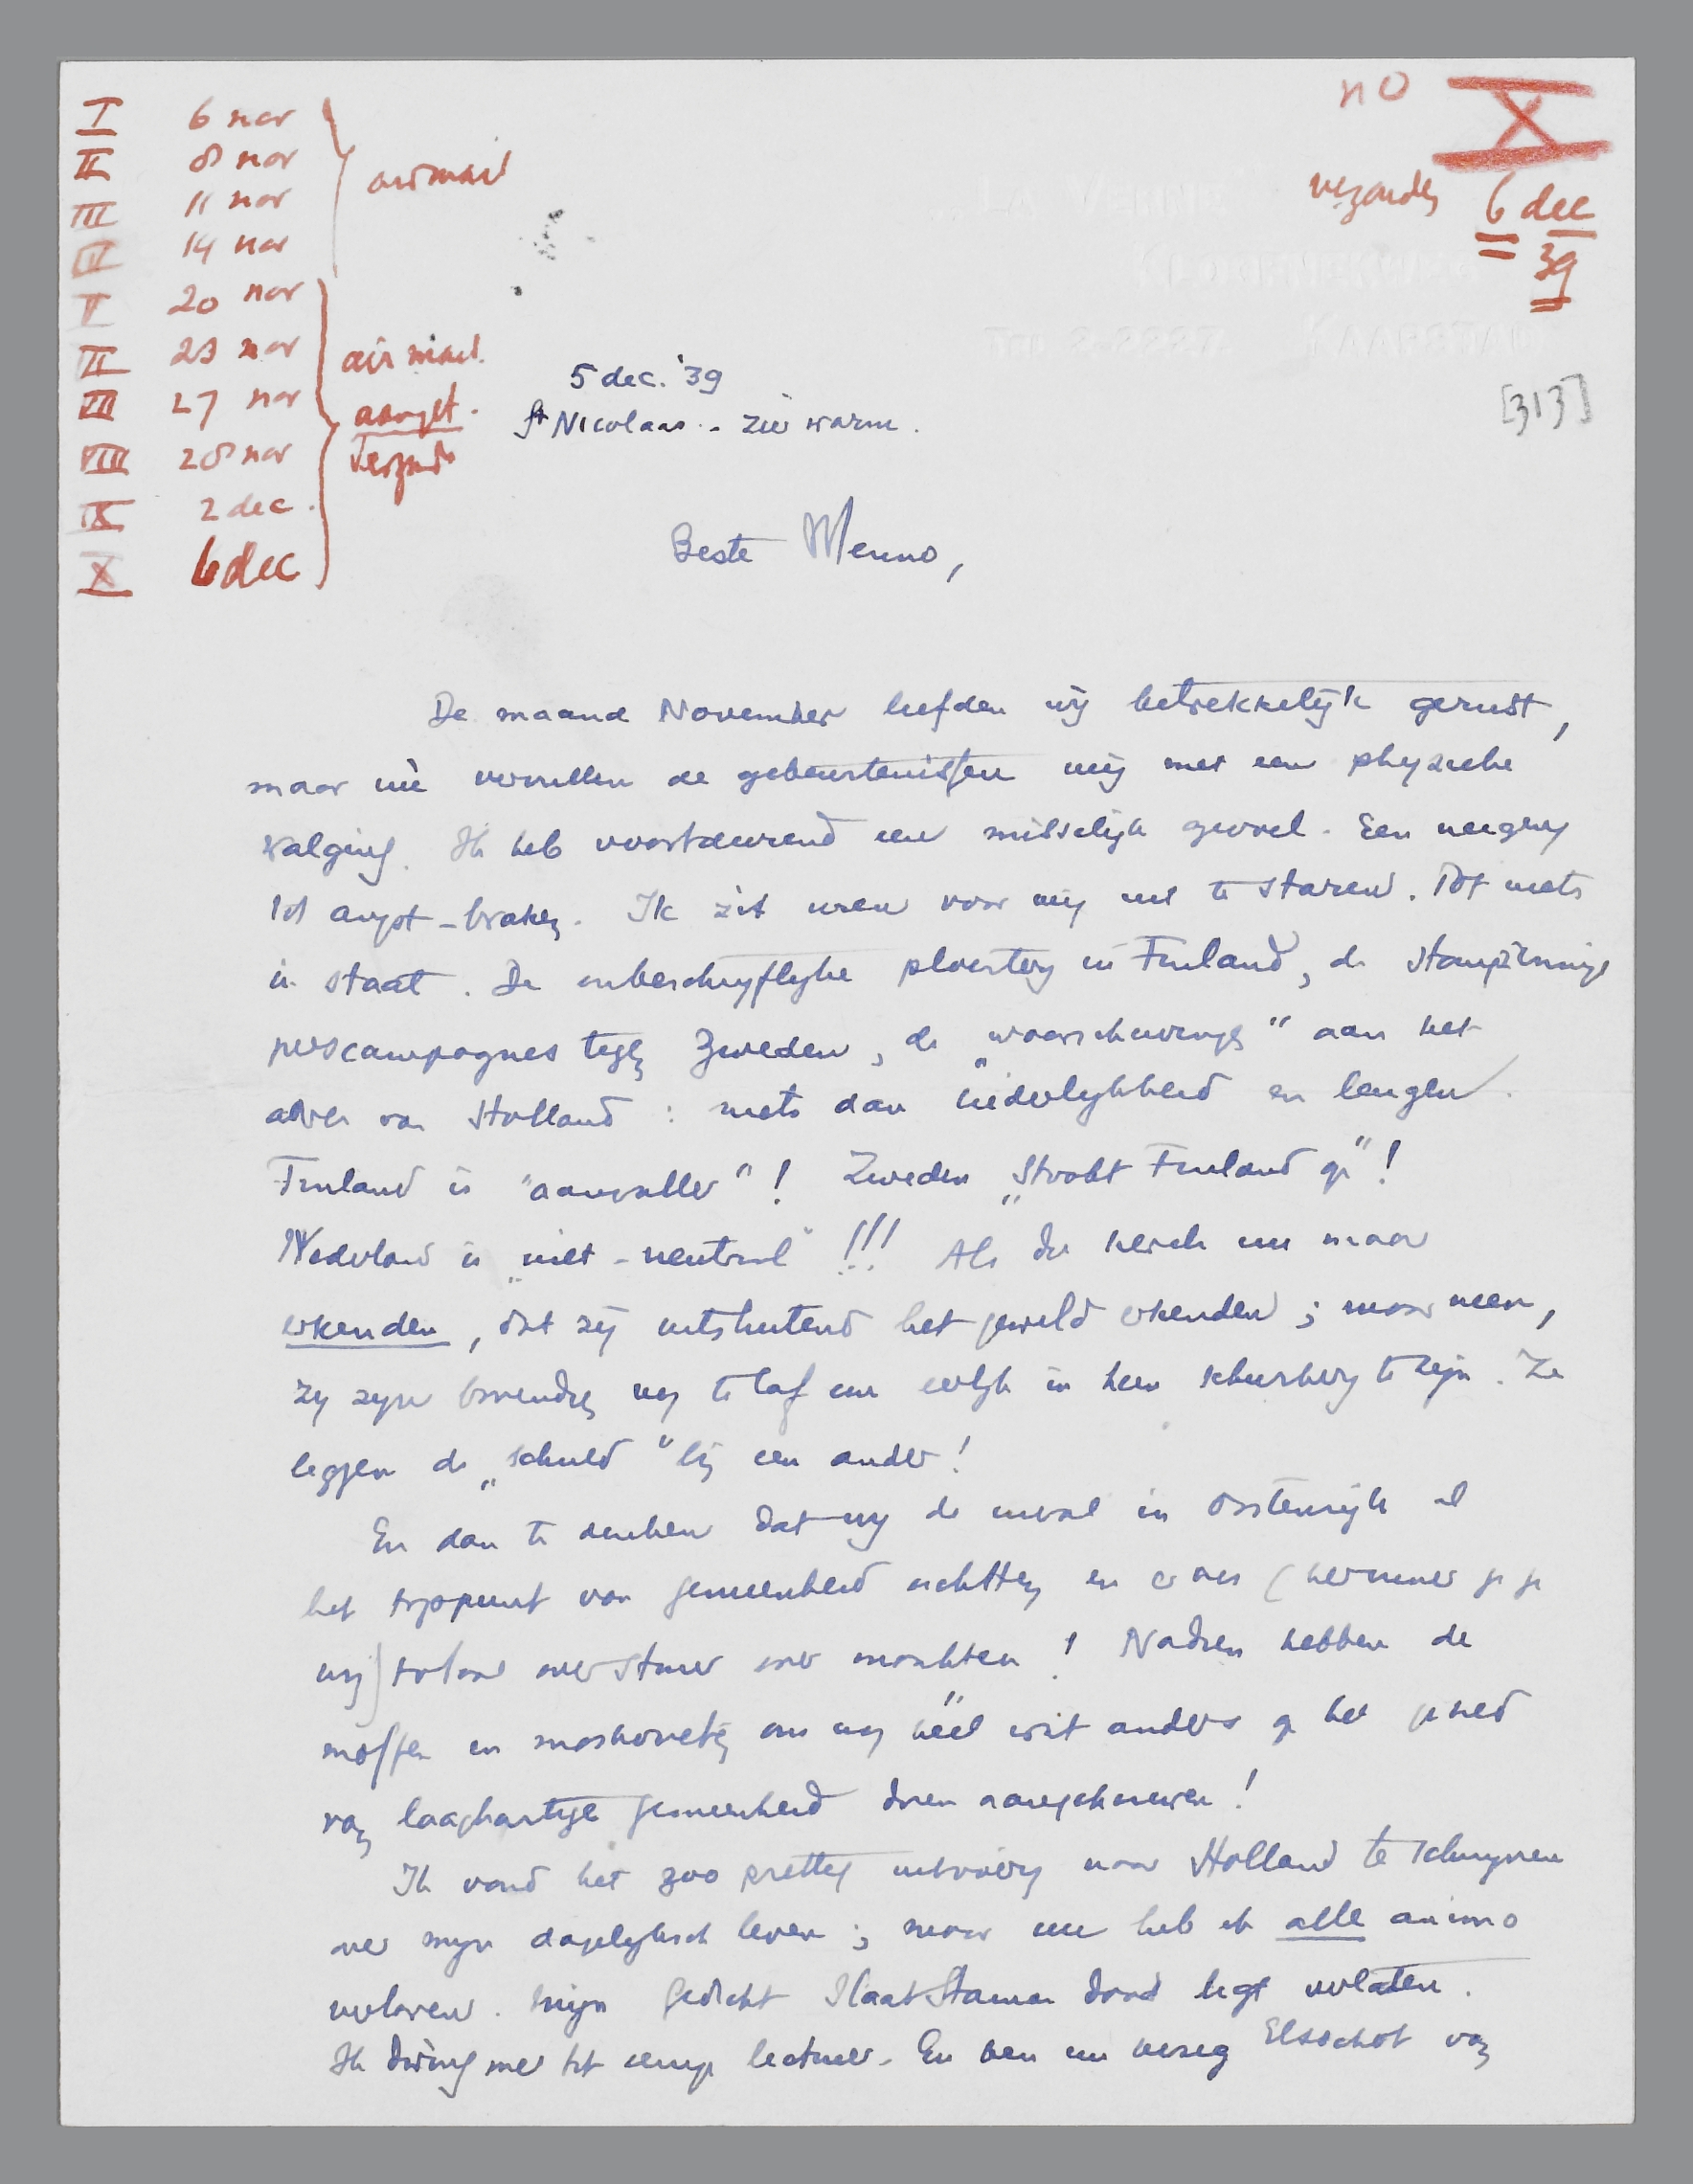 I 6 nov
II 8 nov
III 11 nov
IV 14 nov
airmail
V 20 nov
VI 23 nov
VII 27 nov
VIII 28 nov
IX 2 dec.
X 6 dec
air mail.
aanget.
verzonden
no X
verzonden 6 dec
39
"LA VERNE"
KLOOFNEKWEG
TEL 2-2227. KAAPSTAD
[313]
5 dec. '39
St Nicolaas - zéér warm.
Beste Menno,
De maand November leefden wij betrekkelijk gerust,
maar nù vervullen de gebeurtenissen mij met een physieke
walging. Ik heb voortdurend een misselijk gevoel. Een neiging
tot angst-braken. Ik zit uren voor mij uit te staren. Tot niets
in staat. De onbeschrijflijke ploertery in Finland, de stompzinnige
perscampagnes tegen Zweden, de „waarschuwingen" aan het
adres van Holland: niets dan liederlijkheid en leugen.
Finland is "aanvaller"! Zweden „stookt Finland op"!
Nederland is „niet-neutraal" !!! Als die kerels nu maar
erkenden, dat zij uitsluitend het geweld erkenden; maar neen,
zij zijn bovendien nog te laf om eerlijk in hun schurkery te zijn. Ze
leggen de „schuld" bij een ander!
En dan te denken dat wij de inval in Oostenrijk al
het toppunt van gemeenheid achtten en er ons (herinner je je
nog) totaal overstuur over maakten! Nadien hebben de
moffen en moskovieten ons nog héél wat anders op het gebied
van laaghartige gemeenheid doen aanschouwen!
Ik vond het zoo prettig uitvoerig naar Holland te schrijven
over mijn dagelijksch leven; maar nu heb ik alle animo
verloren. Mijn gedicht Slaat Staman dood ligt verlaten.
Ik dwing me tot eenige lectuur. En ben nu bezig Elsschot van